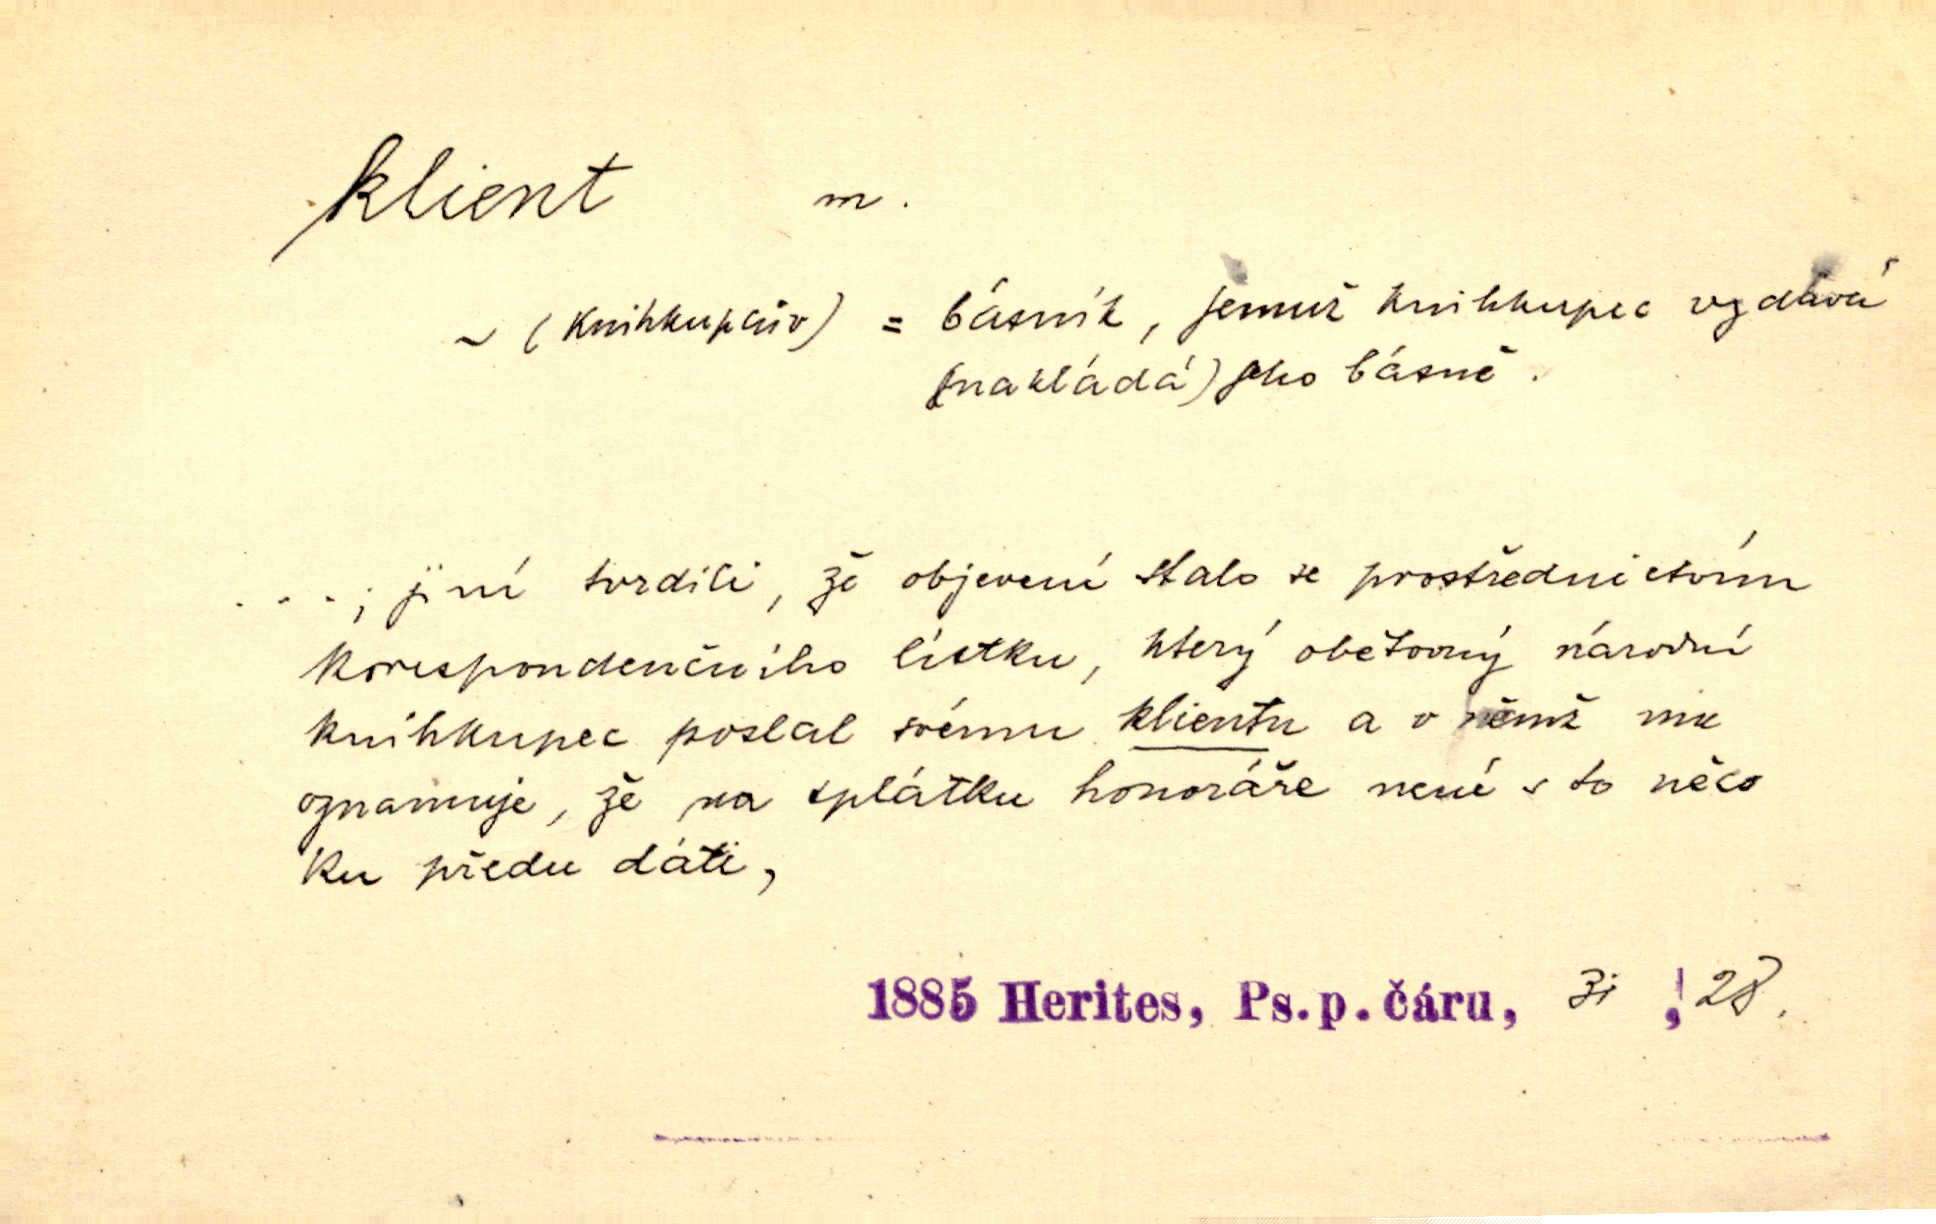 klient m.
~ (knihkupcův) = básník, jemuž knihkupec vydává
(nakládá) jeho básně.
. . . ; jiní tvrdili, že objevení stalo se prostřednictvím
korespondenčního lístku, který obětovný národní
knihkupec poslal svému klientu a v němž mu
oznamuje, že na splátku honoráře není s to něco
ku předu dáti,
1885 Herites, Ps. p. čáru, 3i , 28.